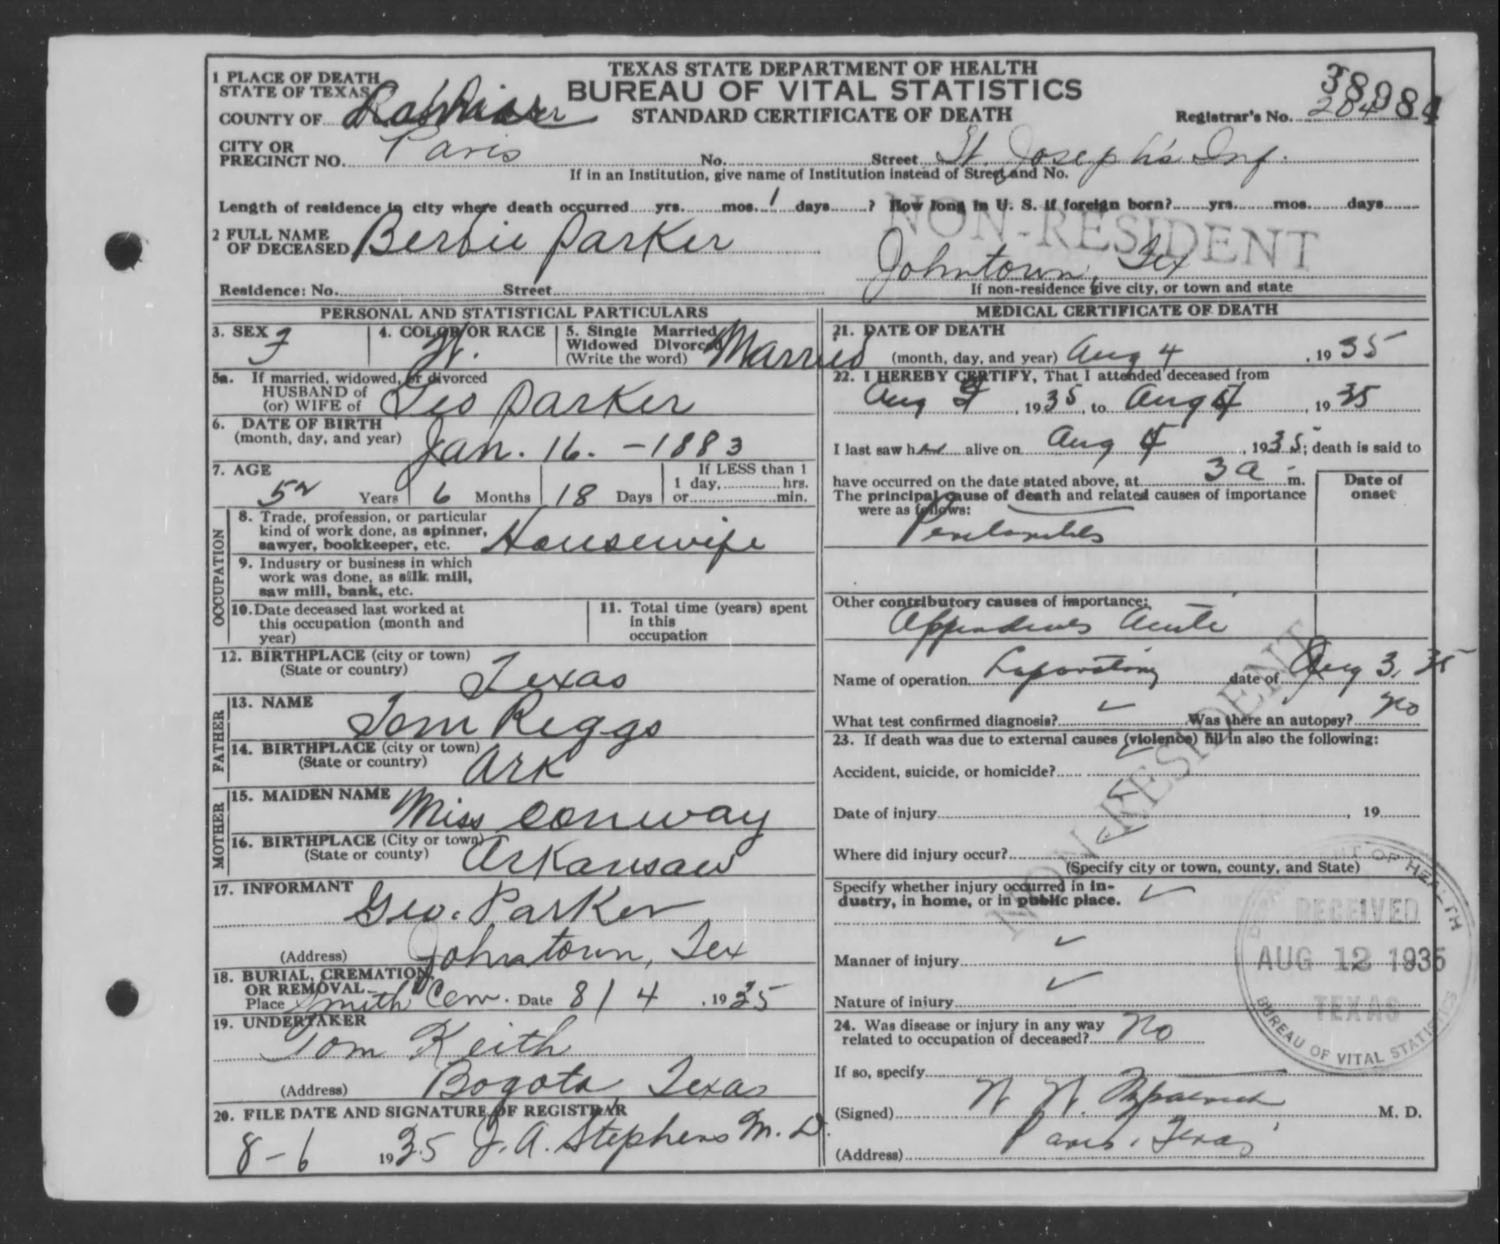 TEXAS STATE DEPARTMENT OF HEALTH
BUREAU OF VITAL STATISTICS
STANDARD CERTIFICATE OF DEATH
38084
Registrar's No. 284
1 PLACE OF DEATH
STATE OF TEXAS
COUNTY OF Lamar
CITY OR
PRECINCT NO. Paris No. Street St. Joseph's Inf.
If in an Institution, give name of Institution instead of Street and No.
Length of residence in city where death occurred yrs. mos. 1 days ? How long in U. S. if foreign born? yrs. mos. days
NON-RESIDENT
2 FULL NAME
OF DECEASED Berbie Parker
Johntown, Tex
Residence: No. Street If non-residence give city, or town and state
PERSONAL AND STATISTICAL PARTICULARS
3. SEX F
4. COLOR OR RACE W.
5. Single Married
Widowed Divorced
(Write the word) Married
5a. If married, widowed, or divorced
HUSBAND of
(or) WIFE of Geo Parker
6. DATE OF BIRTH
(month, day, and year) Jan. 16. - 1883
7. AGE
If LESS than 1
1 day, hrs.
or min.
52 Years 6 Months 18 Days
OCCUPATION
8. Trade, profession, or particular
kind of work done, as spinner,
sawyer, bookkeeper, etc. Housewife
9. Industry or business in which
work was done, as silk mill,
saw mill, bank, etc.
10. Date deceased last worked at
this occupation (month and
year)
11. Total time (years) spent
in this
occupation
12. BIRTHPLACE (city or town)
(State or country) Texas
FATHER
13. NAME Tom Riggs
14. BIRTHPLACE (city or town)
(State or country) Ark
MOTHER
15. MAIDEN NAME Miss Conway
16. BIRTHPLACE (City or town)
(State or county) Arkansaw
17. INFORMANT Geo. Parker
(Address) Johnstown, Tex
18. BURIAL, CREMATION,
OR REMOVAL
Place Smith Cem. Date 8/4, 1935
19. UNDERTAKER
Tom Keith
(Address) Bogota Texas
20. FILE DATE AND SIGNATURE OF REGISTRAR
8-6 1935 J. A. Stephens M. D.
MEDICAL CERTIFICATE OF DEATH
21. DATE OF DEATH
(month, day, and year) Aug 4, 1935
22. I HEREBY CERTIFY, That I attended deceased from
Aug, 1935, to Aug 4, 1935
I last saw her alive on Aug 4, 1935; death is said to
have occurred on the date stated above, at 3 a m.
The principal cause of death and related causes of importance
were as follows:
Date of
onset
Other contributory causes of importance:
Acute
Name of operation date of Aug 3, 35
What test confirmed diagnosis? Was there an autopsy? no
23. If death was due to external causes (violence) fill in also the following:
Accident, suicide, or homicide?
Date of injury, 19
Where did injury occur?
(Specify city or town, county, and State)
Specify whether injury occurred in in-
dustry, in home, or in public place.
Manner of injury
Nature of injury
24. Was disease or injury in any way
related to occupation of deceased? No
If so, specify
(Signed) M. D.
(Address) Paris, Texas
NON RESIDENT
DEPARTMENT OF HEALTH
RECEIVED
AUG 12 1935
TEXAS
BUREAU OF VITAL STATISTICS